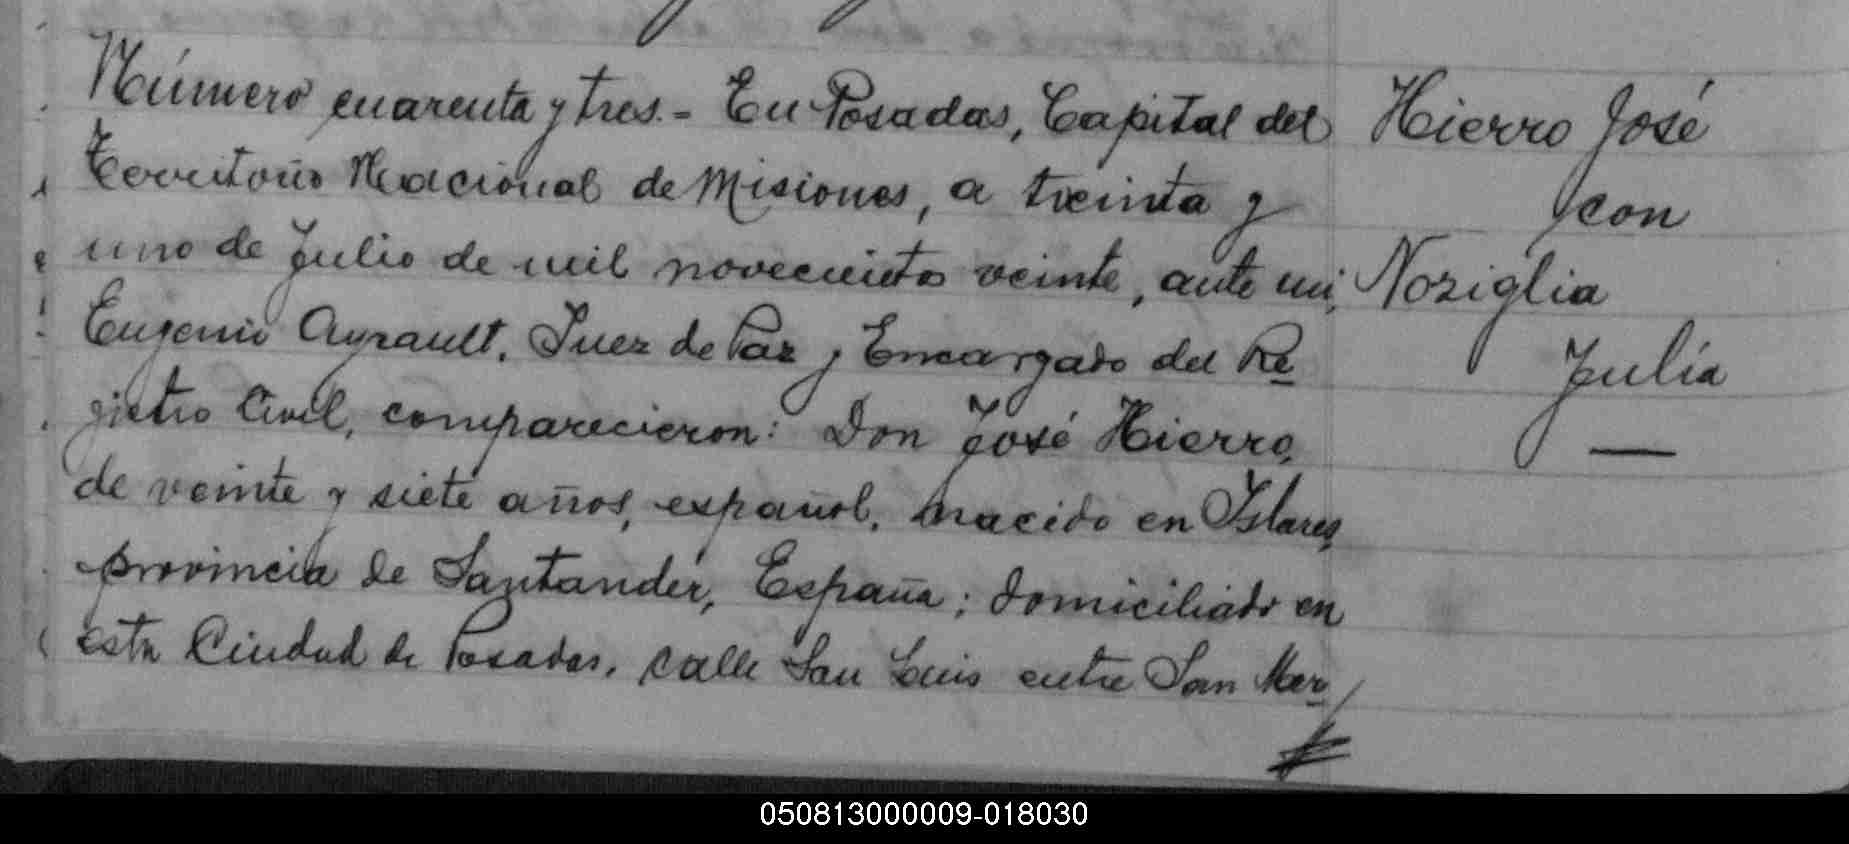 Número cuarenta y tres.- En Posadas, Capital del
Territorio Nacional de Misiones, a treinta y
uno de Julio de mil novecientos veinte, ante mi,
Eugenio Ayrault, Juez de Paz y Encargado del Re-
gistro Civil, comparecieron: Don José Hierro,
de veinte y siete años, español, nacido en Islares,
provincia de Santander, España; domiciliado en
esta Ciudad de Posadas, calle San Luis entre San Mar-
Hierro José
con
Noziglia
Julia
050813000009-018030